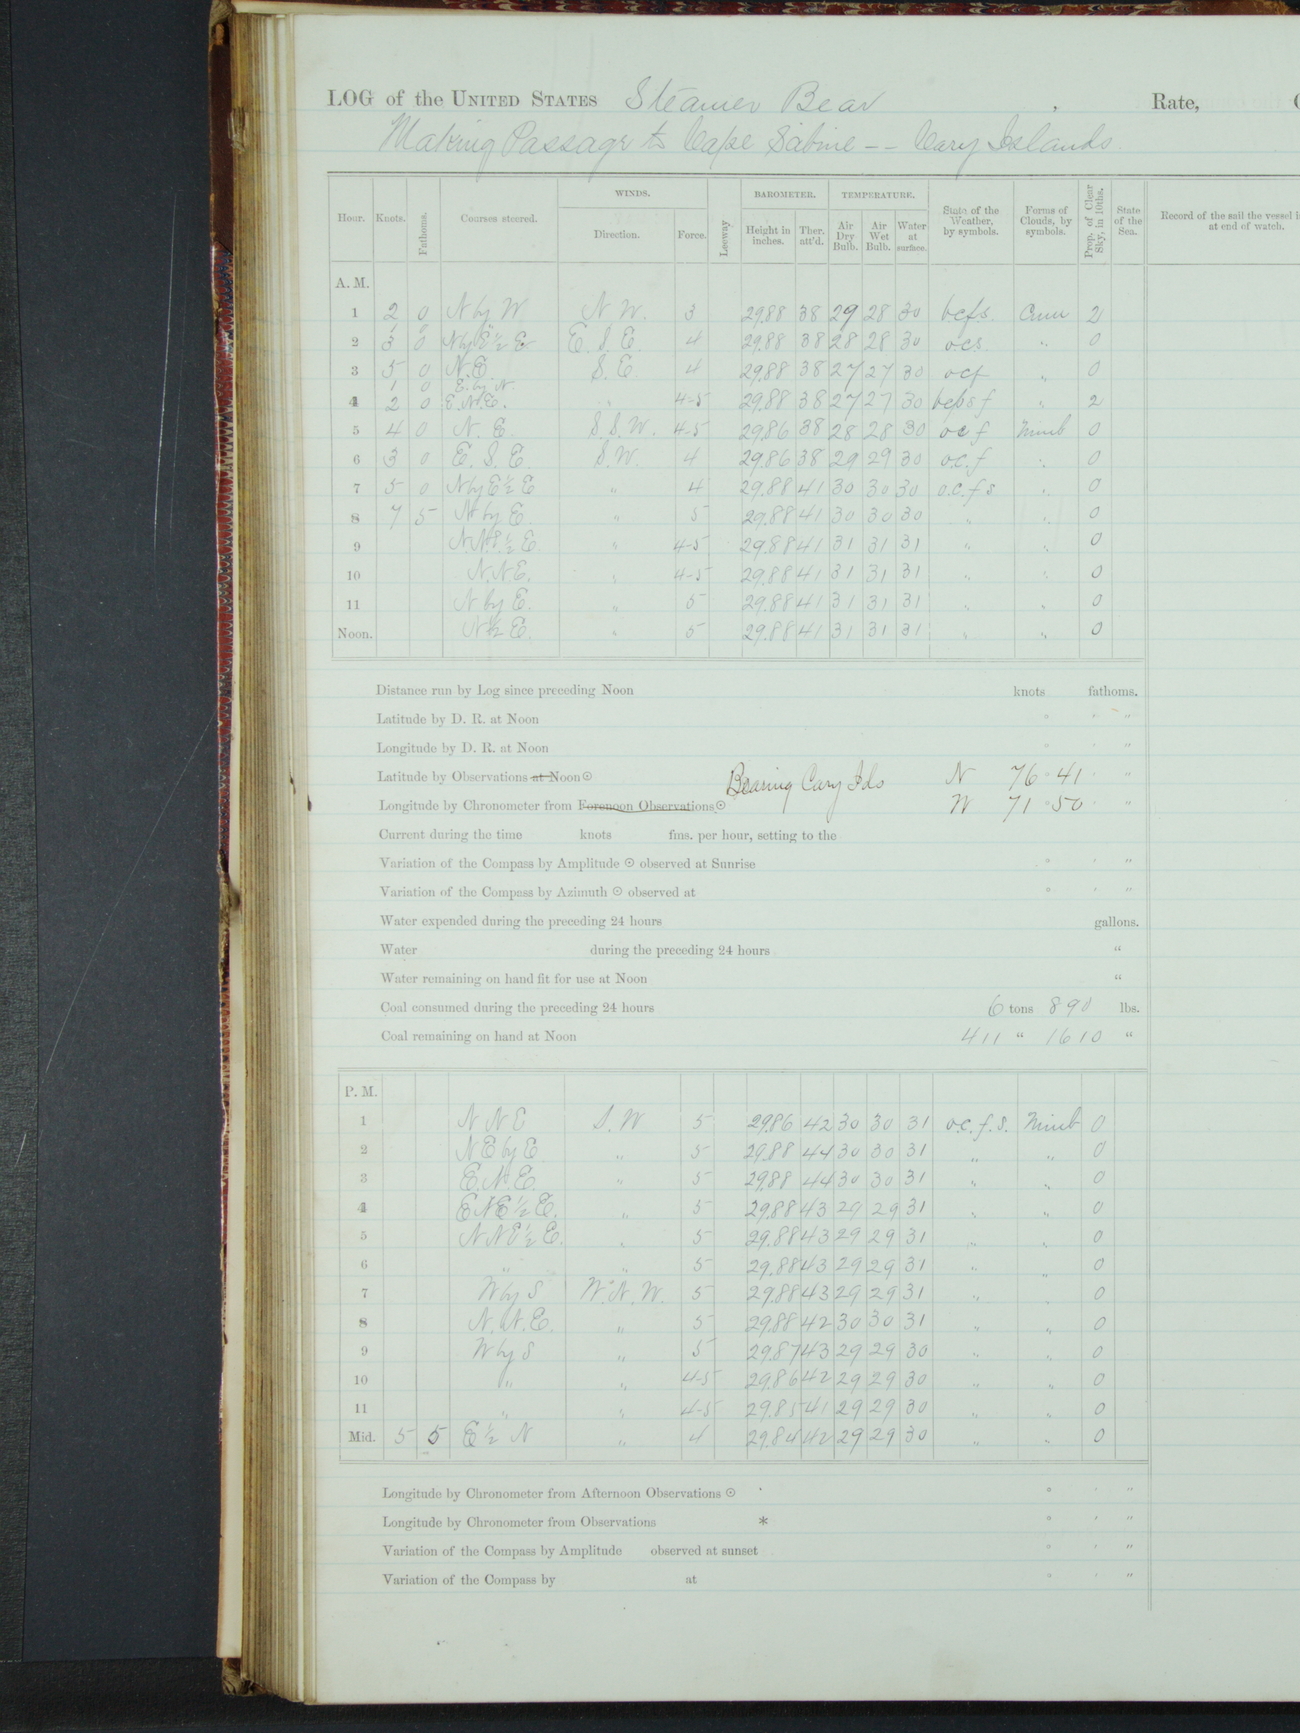 LOG of the UNITED STATES Steamer Bear , Rate,
Making Passage to Cape Sabine -- Cary Islands.
Hour. Knots. Fathoms. Courses steered. WINDS. Direction. Force. Leeway BAROMETER. Height in inches. Ther. att'd. TEMPERATURE. Air Dry Bulb. Air Wet Bulb. Water at surface. State of the Weather, by symbols. Forms of Clouds, by symbols. Prop. of Clear Sky, in 10ths. State of the Sea. Record of the sail the vessel at end of watch.
A. M.
1 2 0 N by W N W. 3 29.88 38 29 28 30 bcfs. Cum 2
2 3 0 N by E ½ E E. S. E. 4 29.88 38 28 28 30 ocs. " 0
3 5 0 N.E. S. E. 4 29.88 38 27 27 30 ocf " 0
1 0 E. by N
4 2 0 E.N.E. " 4-5 29.88 38 27 27 30 " 2
5 4 0 N. E. S. S. W. 4-5 29.86 38 28 28 30 ocf Nimb 0
6 3 0 E. S. E. S.W. 4 29.86 38 29 29 30 o.c.f " 0
7 5 0 N by E ½ E " 4 29.88 41 30 30 30 o.c.f s " 0
8 7 5 N by E. " 5 29.88 41 30 30 30 " " 0
9 N.N.E. ½ E " 4-5 29.88 41 31 31 31 " " 0
10 N.N.E. " 4-5 29.88 41 31 31 31 " " 0
11 N by E. " 5 29.88 41 31 31 31 " " 0
Noon. N ½ E. " 5 29.88 41 31 31 31 " " 0
Distance run by Log since preceding Noon knots fathoms.
Latitude by D. R. at Noon ° ' "
Longitude by D. R. at Noon ° ' "
Latitude by Observations at Noon ⊙ Bearing Cary Ids N 76 ° 41 ' "
Longitude by Chronometer from Forenoon Observations ⊙ W 71 ° 50 ' "
Current during the time knots fms. per hour, setting to the
Variation of the Compass by Amplitude ⊙ observed at Sunrise ° ' "
Variation of the Compass by Azimuth ⊙ observed at ° ' "
Water expended during the preceding 24 hours gallons.
Water during the preceding 24 hours "
Water remaining on hand fit for use at Noon "
Coal consumed during the preceding 24 hours 6 tons 890 lbs.
Coal remaining on hand at Noon 411 " 1610 "
P. M.
1 N N E S. W 5 29.86 42 30 30 31 o.c.f.s. Nimb 0
2 N E by E " 5 29.88 44 30 30 31 " " 0
3 E.N.E. " 5 29.88 44 30 30 31 " " 0
4 E N E ½ E. " 5 29.88 43 29 29 31 " " 0
5 N N E ½ E. " 5 29.88 43 29 29 31 " " 0
6 " " 5 29.88 43 29 29 31 " " 0
7 W by S W. N. W. 5 29.88 43 29 29 31 " " 0
8 N. N. E. " 5 29.88 42 30 30 31 " " 0
9 W by S " 5 29.87 43 29 29 30 " " 0
10 " " 4-5 29.86 42 29 29 30 " " 0
11 " " 4-5 29.85 41 29 29 30 " " 0
Mid. 5 5 E ½ N " 4 29.84 42 29 29 30 " " 0
Longitude by Chronometer from Afternoon Observations ⊙ ° ' "
Longitude by Chronometer from Observations * ° ' "
Variation of the Compass by Amplitude observed at sunset ° ' "
Variation of the Compass by at ° ' "